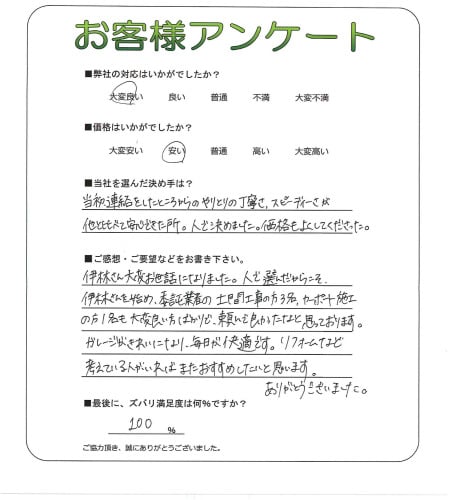 お客様アンケート
■弊社の対応はいかがでしたか？
大変良い 良い 普通 不満 大変不満
■価格はいかがでしたか？
大変安い 安い 普通 高い 大変高い
■当社を選んだ決め手は？
当初連絡をしたところからのやりとりの丁寧さ、スピーディーさが
他とくらべて安心できた所。人で決めました。価格もよくしてくださった。
■ご感想・ご要望などをお書き下さい。
伊林さん大変お世話になりました。人で選んだからこそ、
伊林さんを始め、委託業者の土間工事の方3名、カーポート施工
の方1名も大変良い方ばかりで、頼んで良かったなと思っております。
ガレージがきれいになり、毎日が快適です。リフォームなど
考えている人がいればまたおすすめしたいと思います。
ありがとうございました。
■最後に、ズバリ満足度は何％ですか？
100 ％
ご協力頂き、誠にありがとうございました。